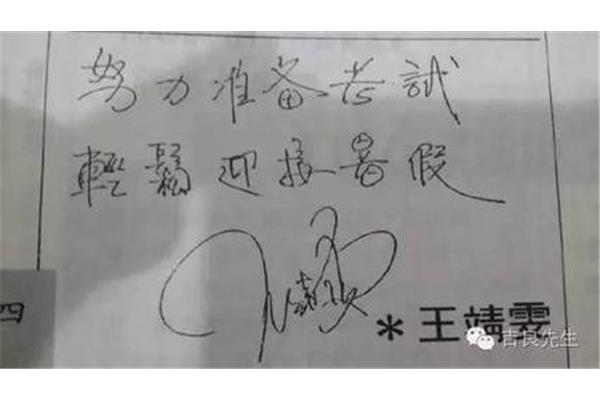 努力准备考試
輕鬆迎接暑假
四
*王靖雯
吉良先生